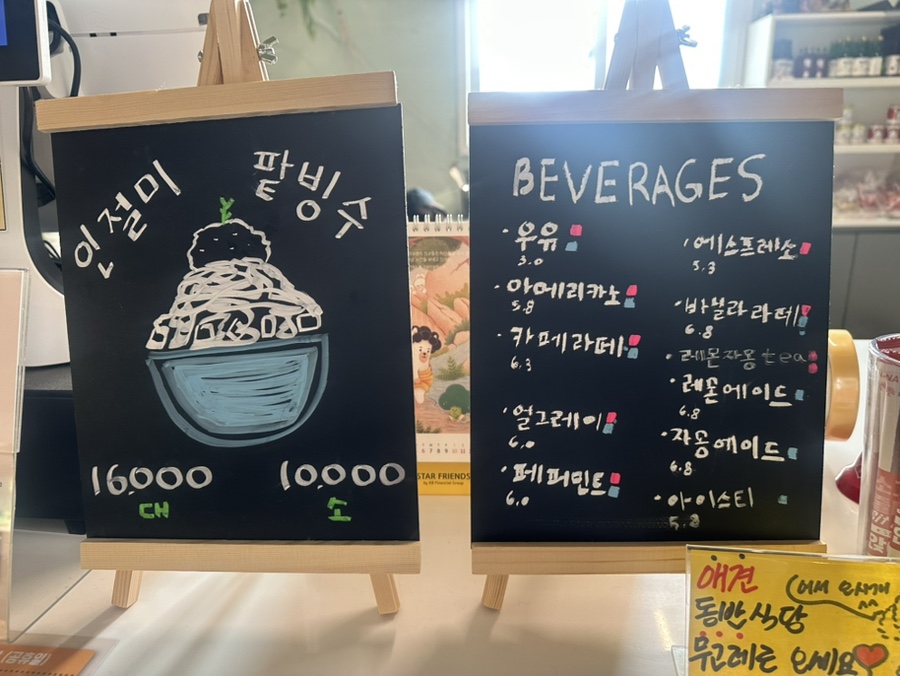 인절미 팥빙수
16,000
대
10,000
소
BEVERAGES
· 우유
3.0
· 아메리카노
5.8
· 카페라떼
6.3
· 얼그레이
6.0
· 페퍼민트
6.0
· 에스프레소
5.3
· 바닐라 라떼
6.8
· 레몬자몽 tea
· 레몬에이드
6.8
· 자몽에이드
6.8
· 아이스티
5.8
STAR FRIENDS
by KB Financial Group
(공휴일)
애견
동반식당
(어서 오시개
^^
무고레로 오세요